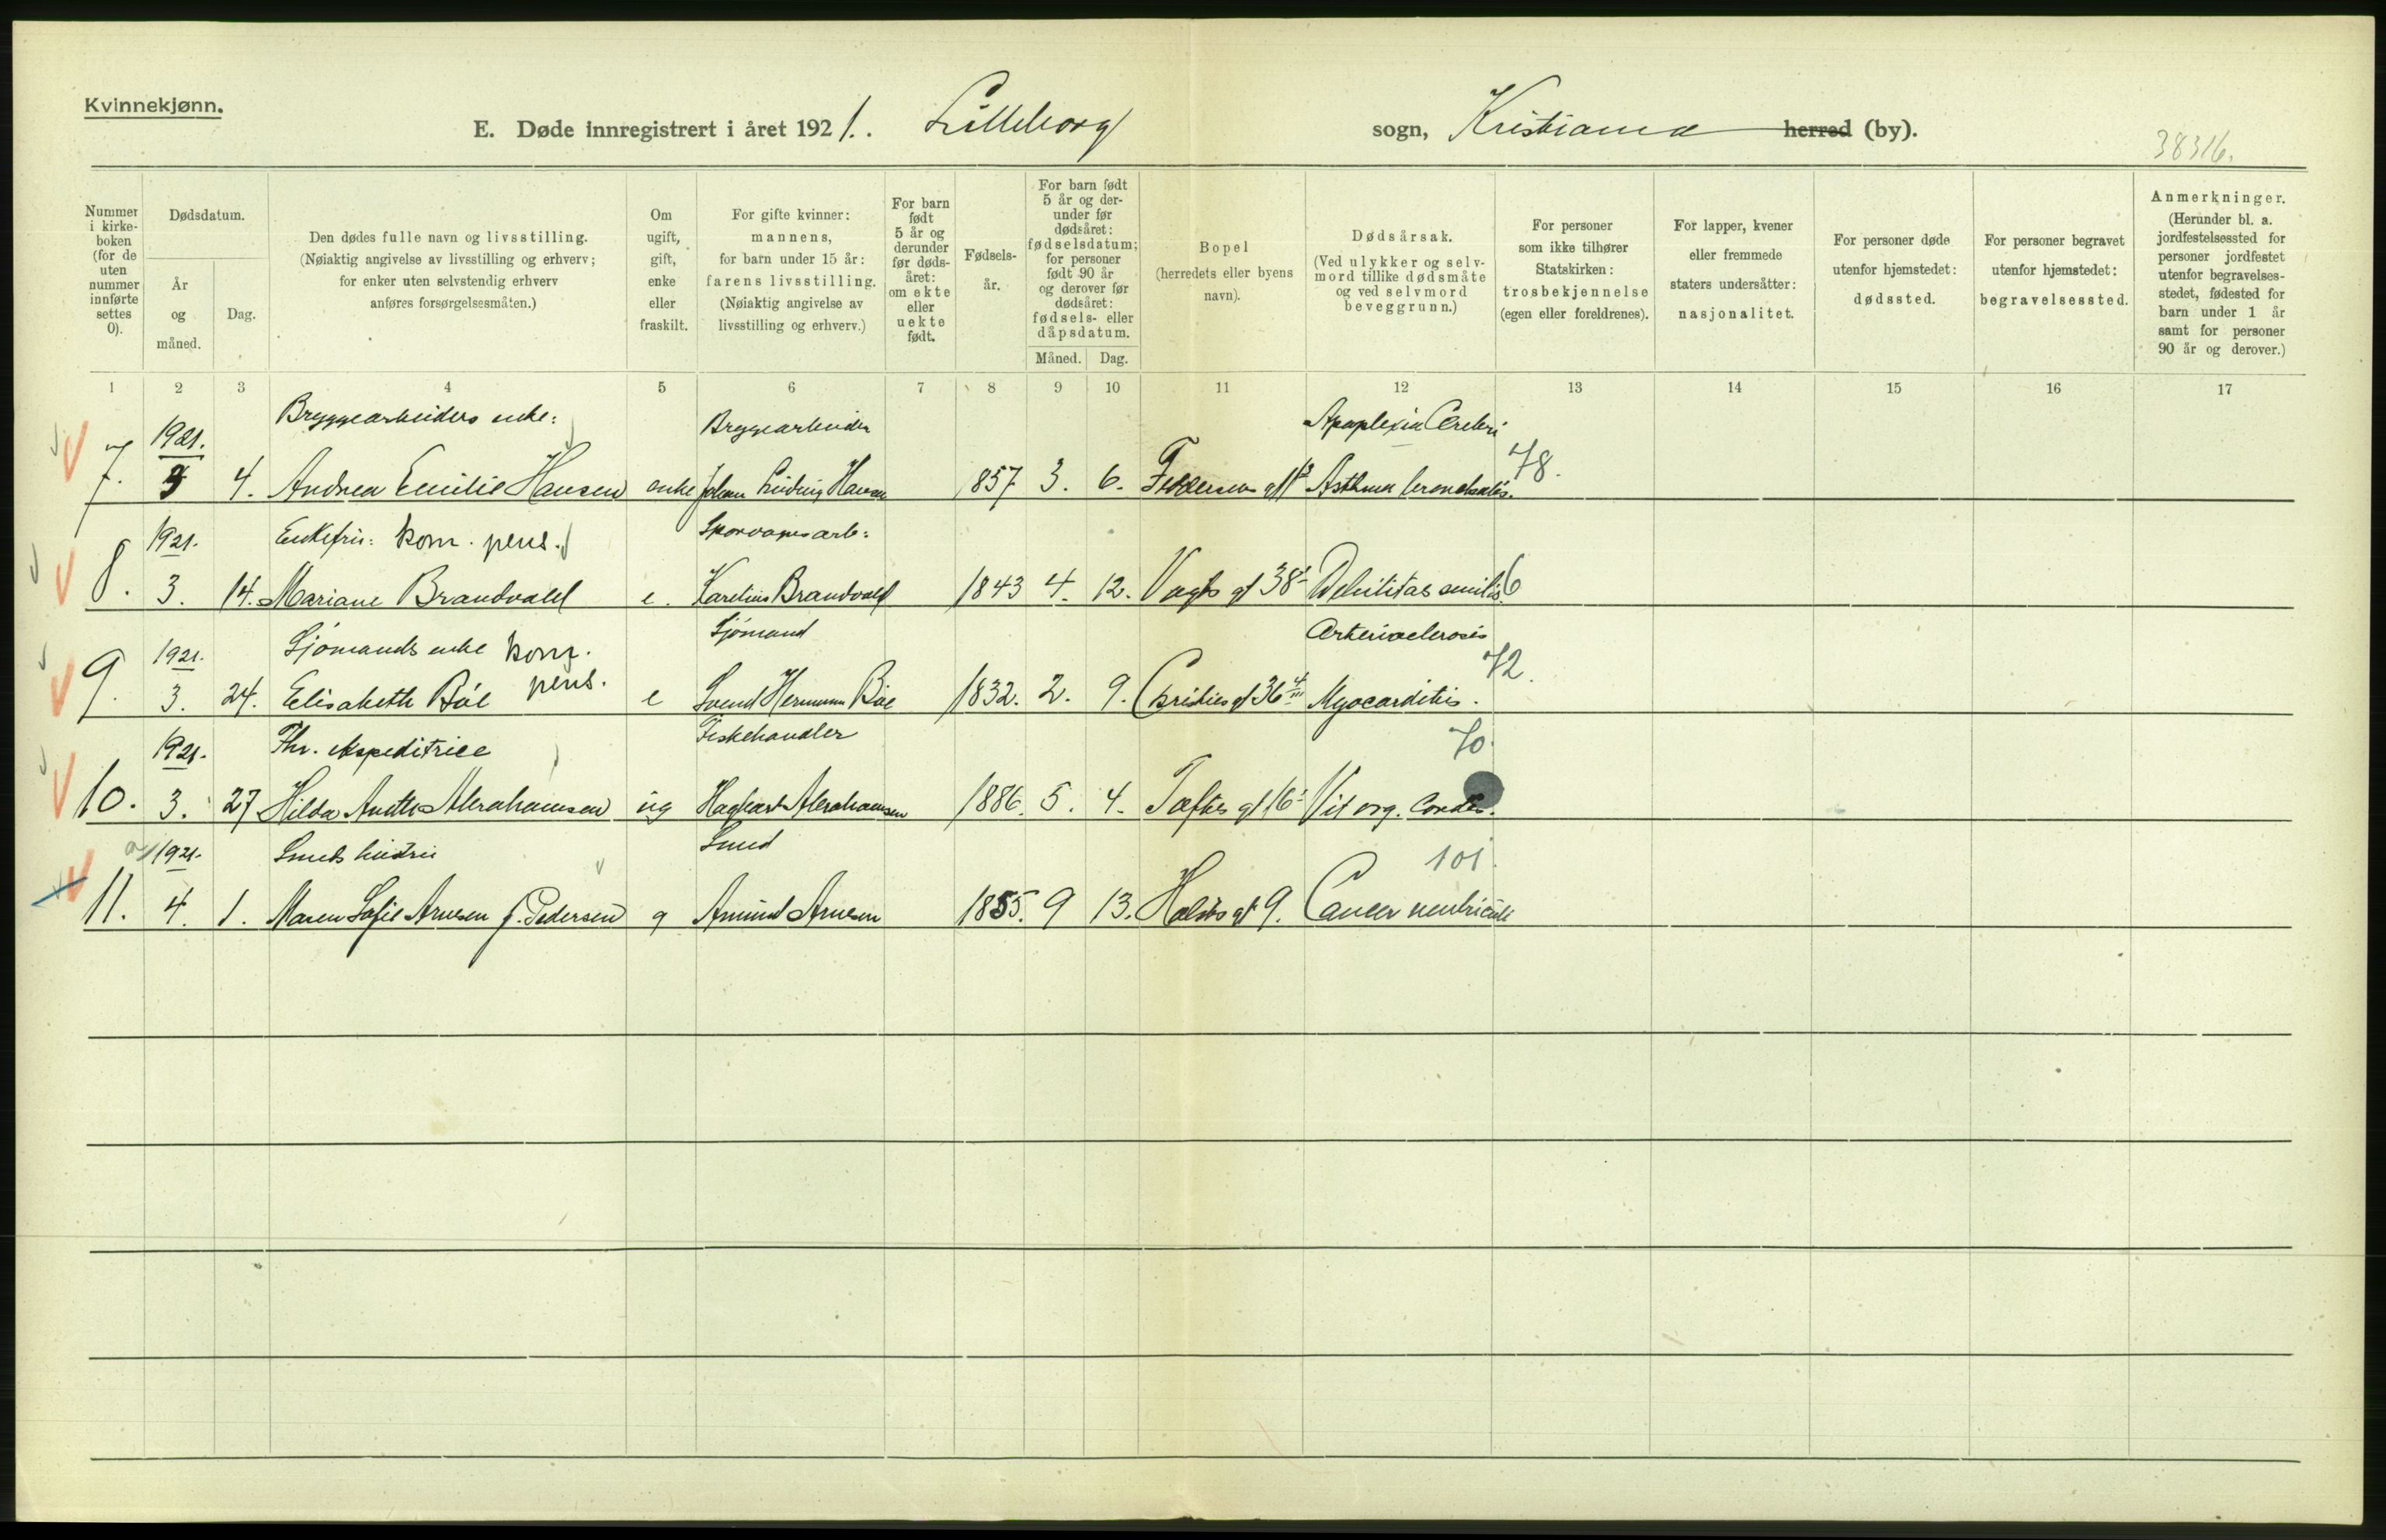 Kvinnekjønn.
E. Døde innregistrert i året 1921. Lilleborg sogn, Kristiania herred (by).
38316.
Nummer i kirke-boken (for de uten nummer innførte settes 0).
Dødsdatum.
År og måned.
Dag.
Den dødes fulle navn og livsstilling.
(Nøiaktig angivelse av livsstilling og erhverv;
for enker uten selvstendig erhverv
anføres forsørgelsesmåten.)
Om ugift, gift, enke eller fraskilt.
For gifte kvinner:
mannens,
for barn under 15 år:
farens livsstilling.
(Nøiaktig angivelse av
livsstilling og erhverv.)
For barn født 5 år og derunder før døds-året: om ekte eller uekte født.
Fødsels-år.
For barn født
5 år og der-
under før
dødsåret:
fødselsdatum;
for personer
født 90 år
og derover før
dødsåret:
fødsels- eller
dåpsdatum.
Måned. Dag.
Bopel
(herredets eller byens
navn).
Dødsårsak.
(Ved ulykker og selv-
mord tillike dødsmåte
og ved selvmord
beveggrunn.)
For personer
som ikke tilhører
Statskirken:
trosbekjennelse
(egen eller foreldrenes).
For lapper, kvener
eller fremmede
staters undersåtter:
nasjonalitet.
For personer døde
utenfor hjemstedet:
dødssted.
For personer begravet
utenfor hjemstedet:
begravelsessted.
Anmerkninger.
(Herunder bl. a.
jordfestelsessted for
personer jordfestet
utenfor begravelses-
stedet, fødested for
barn under 1 år
samt for personer
90 år og derover.)
1 2 3 4 5 6 7 8 9 10 11 12 13 14 15 16 17
1921. Bryggearbeiders enke: Bryggearbeider Apoplexia Cerebri
7. 3 4. Andrea Emilie Hansen enke Johan Ludvig Hansen 1857 3. 6. Asthma bronchialis. 78.
1921. Enkefru: kom. pens. Sporvognsarb:
8. 3. 14. Mariane Brandvold e. Karelius Brandvold 1843 4. 12. Vogts gt 38 Debilitas senilis 6
1921. Sjömands enke kom. pens. Sjömand Arteriosclerosis
9. 3. 24. Elisabeth Böe e Svend Hermann Böe 1832. 2. 9. Christies gt 36 Myocarditis. 72.
1921. Fhv. ekspeditrice Fiskehandler 70.
10. 3. 27 Hilda Abrahamsen ug Hagbart Abrahamsen 1886. 5. 4. Toftes gt 16 Vit org. Cordis.
1921. Smeds hustru Smed 101.
11. 4. 1. Maren Sofie Arnesen f. Pedersen g Amund Arnesen 1855. 9 13. Holsts gt 9. Cancer ventriculi